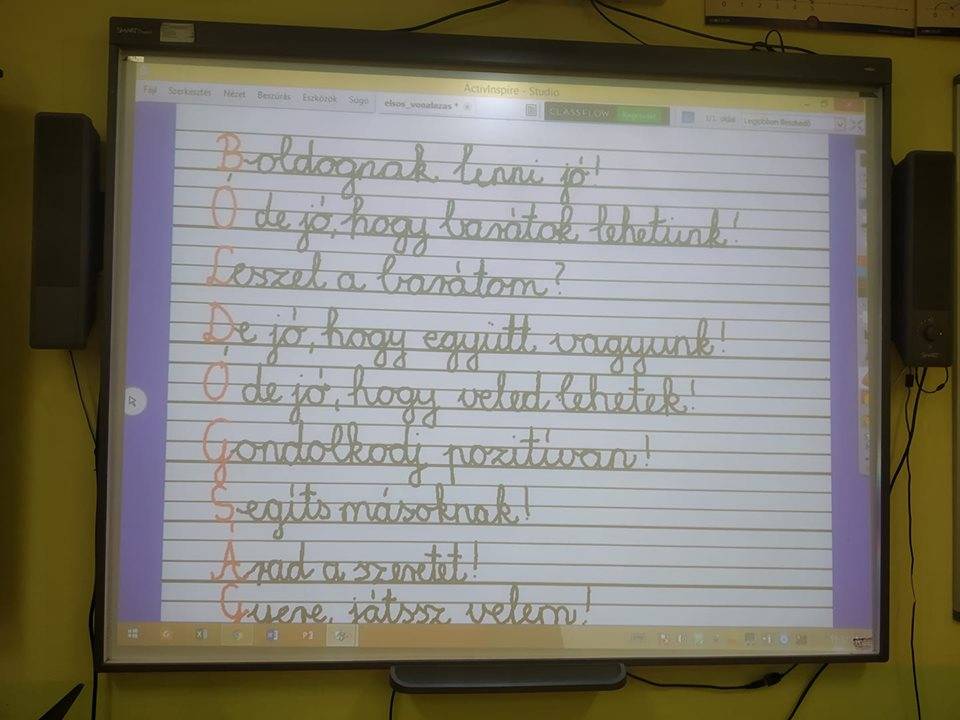 SMART
ActivInspire - Studio
Fájl Szerkesztés Nézet Beszúrás Eszközök Súgó elsos_vonalazas * CLASSFLOW 1/1. oldal Legjobban illeszkedő
Boldognak lenni jó!
Ó de jó, hogy barátok lehetünk!
Leszel a barátom?
De jó, hogy együtt vagyunk!
Ó de jó, hogy veled lehetek!
Gondolkodj pozitívan!
Segíts másoknak!
Árad a szeretet!
Gyere, játssz velem!
SMART